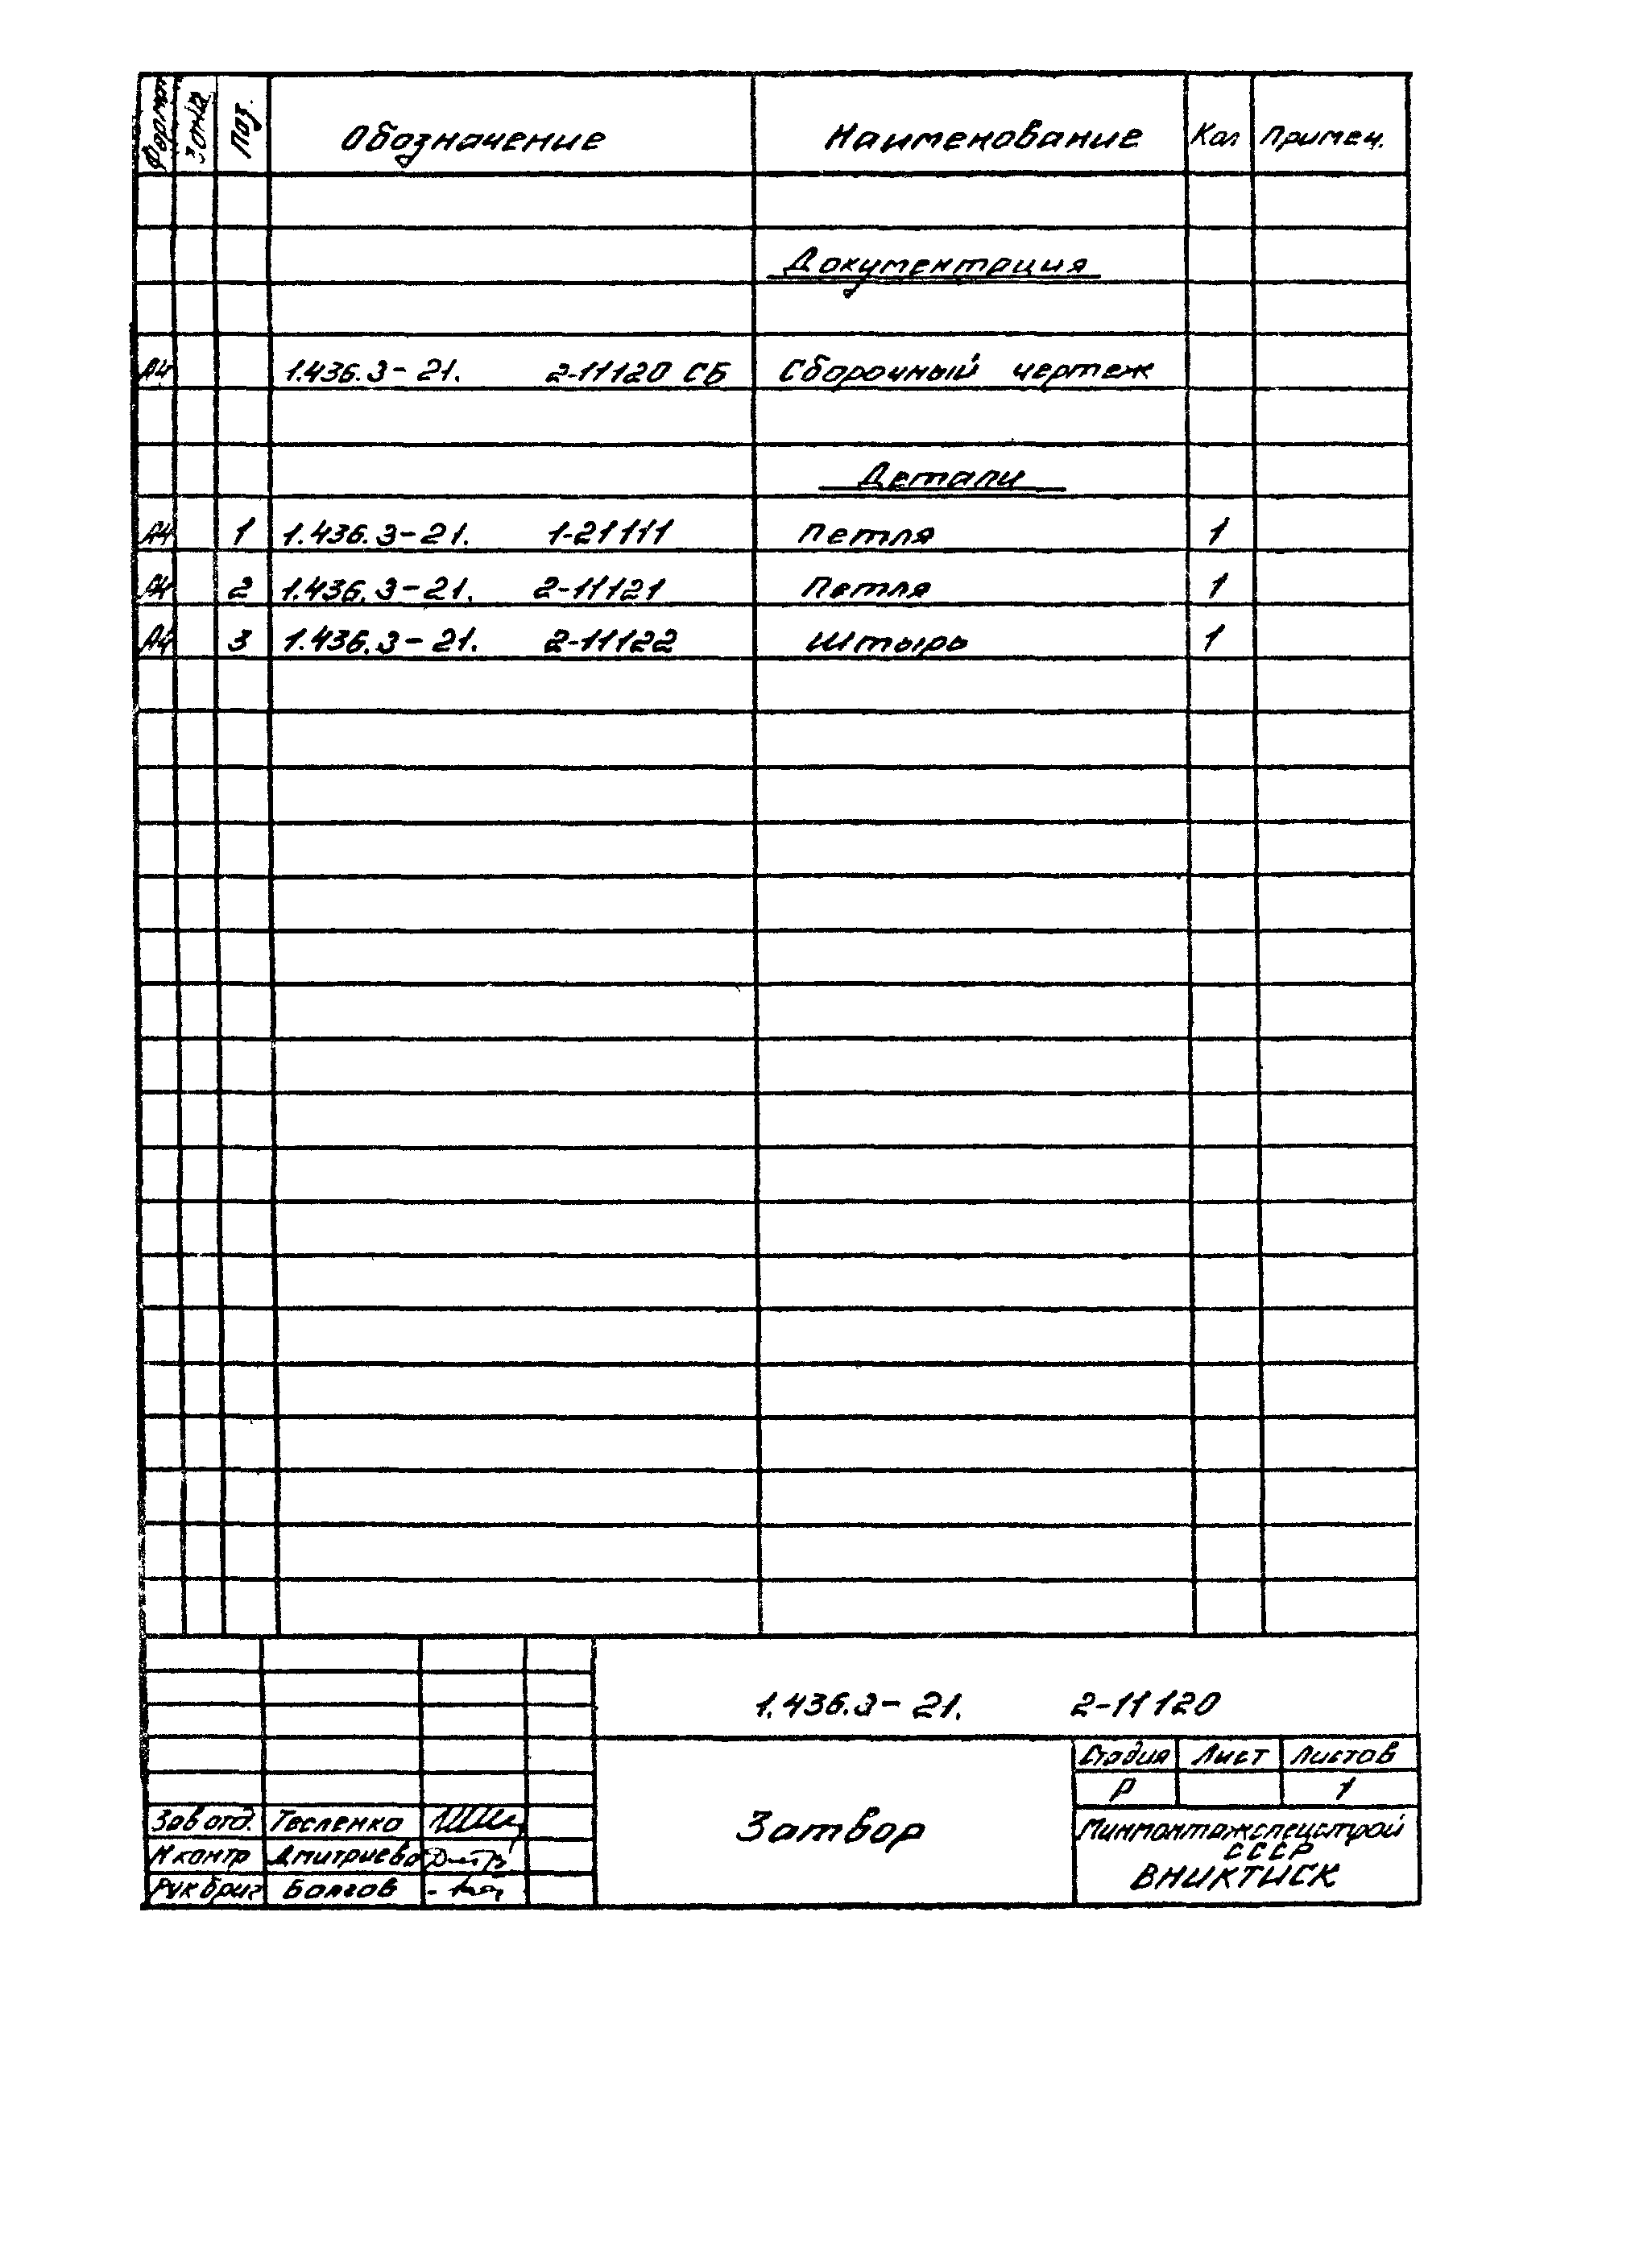 Формат Зона Поз. Обозначение Наименование Кол Примеч.
Документация
А4 1.436.3-21. 2-11120 СБ Сборочный чертеж
Детали
А4 1 1.436.3-21. 1-21111 Петля 1
А4 2 1.436.3-21. 2-11121 Петля 1
А4 3 1.436.3-21. 2-11122 Штырь 1
1.436.3-21. 2-11120
Стадия Лист Листов
Р 1
Зав отд. Тесленко
Н контр Дмитриева
Рук бриг Болгов
Затвор
Минмонтажспецстрой
СССР
ВНИКТИСК